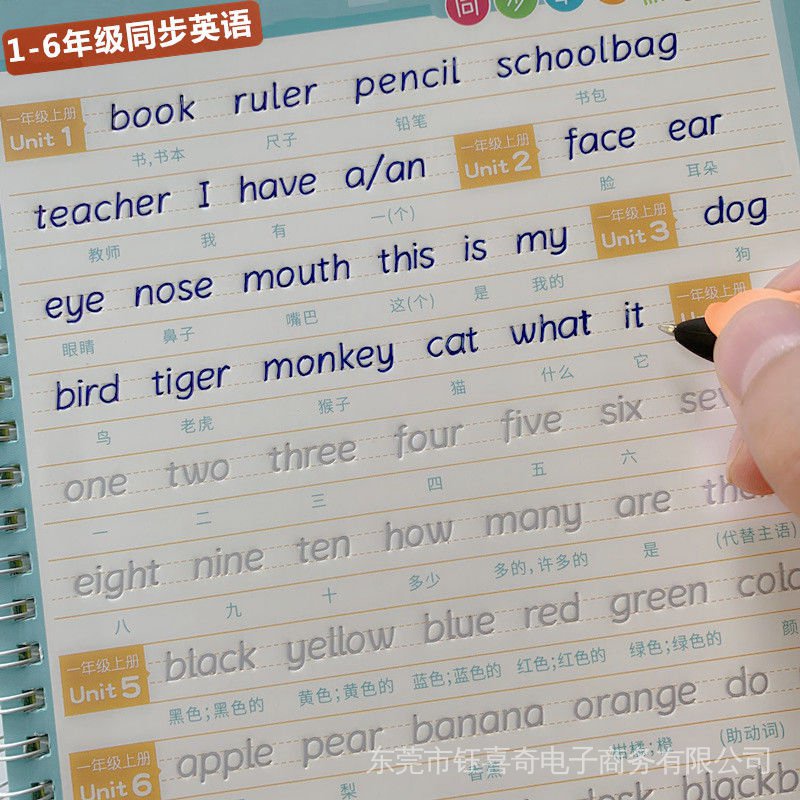 1-6年级同步英语
同步
一年级上册 Unit 1 book ruler pencil schoolbag
书,书本 尺子 铅笔 书包
teacher I have a/an 一年级上册 Unit 2 face ear
教师 我 有 一(个) 脸 耳朵
eye nose mouth this is my 一年级上册 Unit 3 dog
眼睛 鼻子 嘴巴 这(个) 是 我的 狗
bird tiger monkey cat what it 一年级上册
鸟 老虎 猴子 猫 什么 它
one two three four five six
一 二 三 四 五 六
eight nine ten how many are
八 九 十 多少 多的,许多的 是 (代替主语)
一年级上册 Unit 5 black yellow blue red green
黑色;黑色的 黄色;黄色的 蓝色;蓝色的 红色;红色的 绿色;绿色的 颜
一年级上册 Unit 6 apple pear banana orange do
梨 香蕉 柑橘;橙 (助动词)
desk
东莞市钰喜奇电子商务有限公司